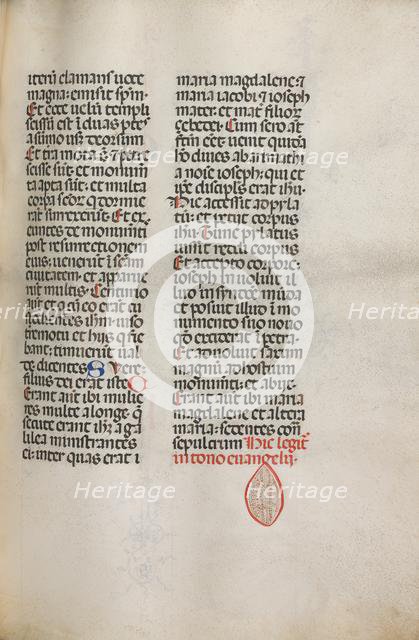 iterū clamans uoce
magna: emisit sp̄m.
Et ecce uelum templi
scissū est ī duas ptes
a sūmo usq̄ deorsum
Et tra mota ē: et petre
scisse sūt: et monum̄
ta apta sūt: et multa
corpa scōr q̄ dormie
rāt surrexerūt. Et ex
euntes de monumtis
post resurrectionem
eius: uenerūt ī scam
ciuitatem: et apparue
rūt multis. Centurio
aūt et q̄ cū eo erāt
custodientes ihm: uiso
terremotu et hiis que
fiebant: timuerūt ual
de dicentes. Uere
filius dei erat iste.
Erant aūt ibi mulie
res multe a longe q̄
secute erant ihm a ga
lilea ministrantes
ei: inter quas erat ī
maria magdalene: et
maria iacobi et ioseph
mater: et mat̄ filior̄
zebedei. Cum sero aūt
factum eēt: uenit quidā
hō diues ab arimathi
a noīe ioseph: qui et
ipē discipls erat ihu.
Hic accessit ad pyla
tū: et petiit corpus
ihu. Tunc pylatus
iussit reddi corpus
Et accepto corpore:
ioseph inuoluit il
lud in syndone munda
et posuit illud ī mo
numento suo nouo
quod exciderat ī petra.
Et aduoluit saxum
magnū ad ostium
monumti: et abiit.
Erant aūt ibi maria
magdalene et altera
maria: sedentes cont̄
sepulcrum Hic legit̄
in tono euangelij.
Heritage
Heritage
Heritage
Heritage
Heritage
Heritage